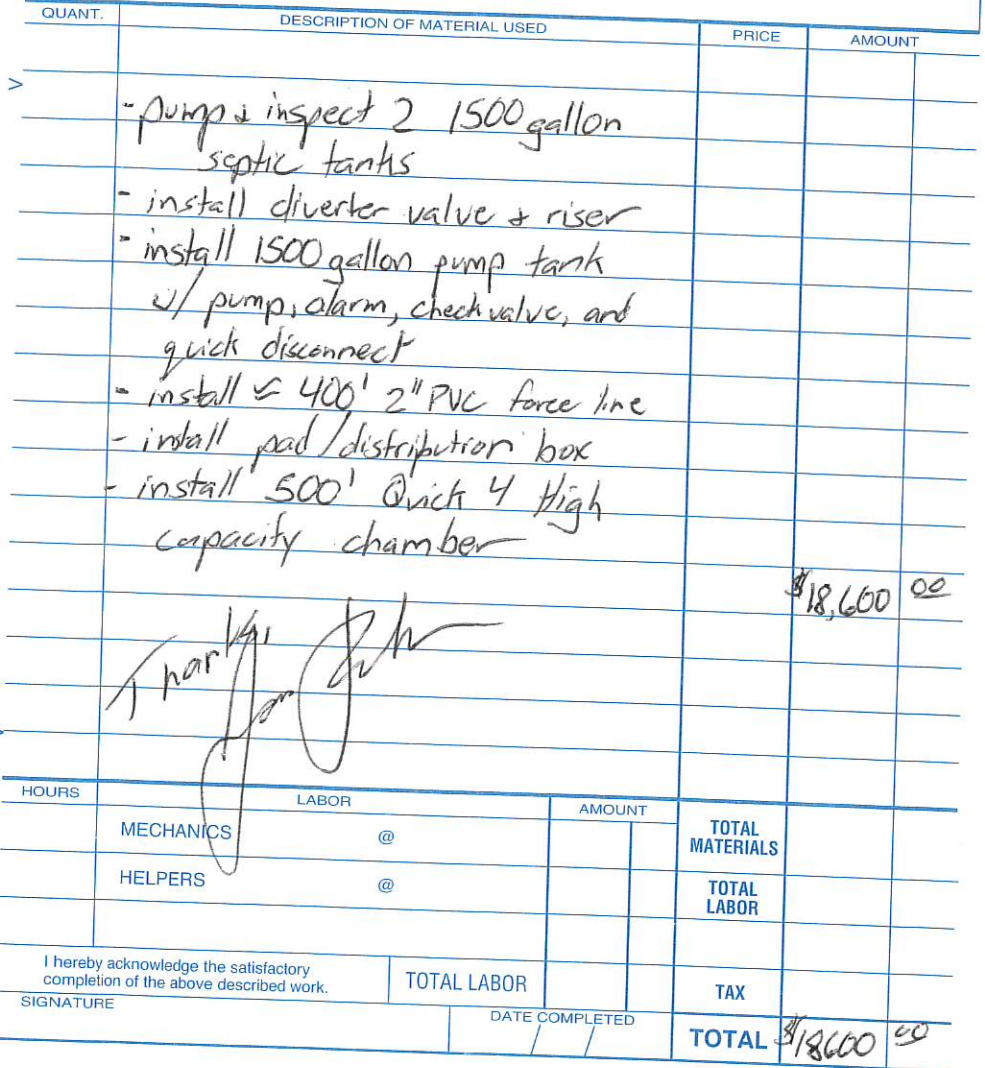 QUANT. DESCRIPTION OF MATERIAL USED PRICE AMOUNT
>
- pump & inspect 2 1500 gallon
septic tanks
- install diverter valve & riser
- install 1500 gallon pump tank
w/ pump, alarm, check valve, and
quick disconnect
- install ≈ 400' 2" PVC force line
- install pad/distribution box
- install 500' Quick 4 High
capacity chamber
$18,600 00
Thanks,
HOURS LABOR AMOUNT
MECHANICS @ TOTAL MATERIALS
HELPERS @ TOTAL LABOR
I hereby acknowledge the satisfactory
completion of the above described work.
TOTAL LABOR TAX
SIGNATURE DATE COMPLETED
/ / TOTAL $18600 00